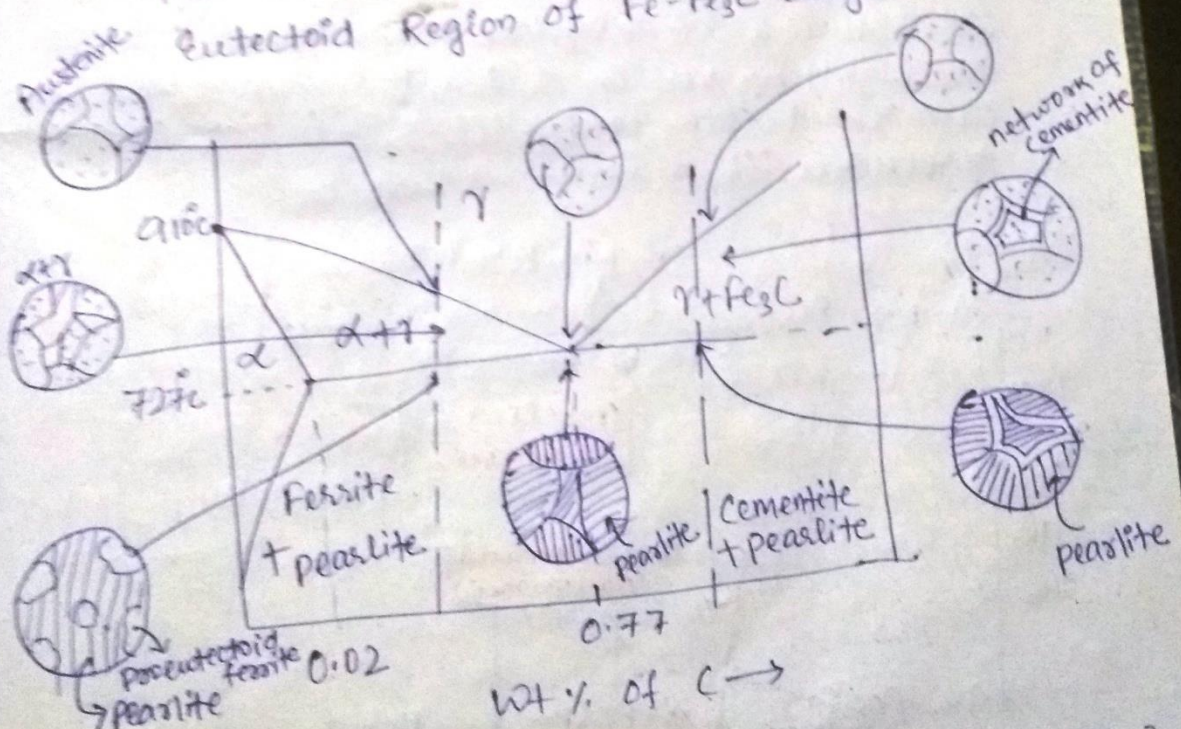 Eutectoid Region of Fe-Fe3C
Austenite
network of
cementite
910°C
γ
α+γ
γ+Fe3C
α
α+γ
727°C
Ferrite
+ pearlite
pearlite
Cementite
+ pearlite
pearlite
proeutectoid
ferrite
pearlite
0.02
0.77
Wt % of C →